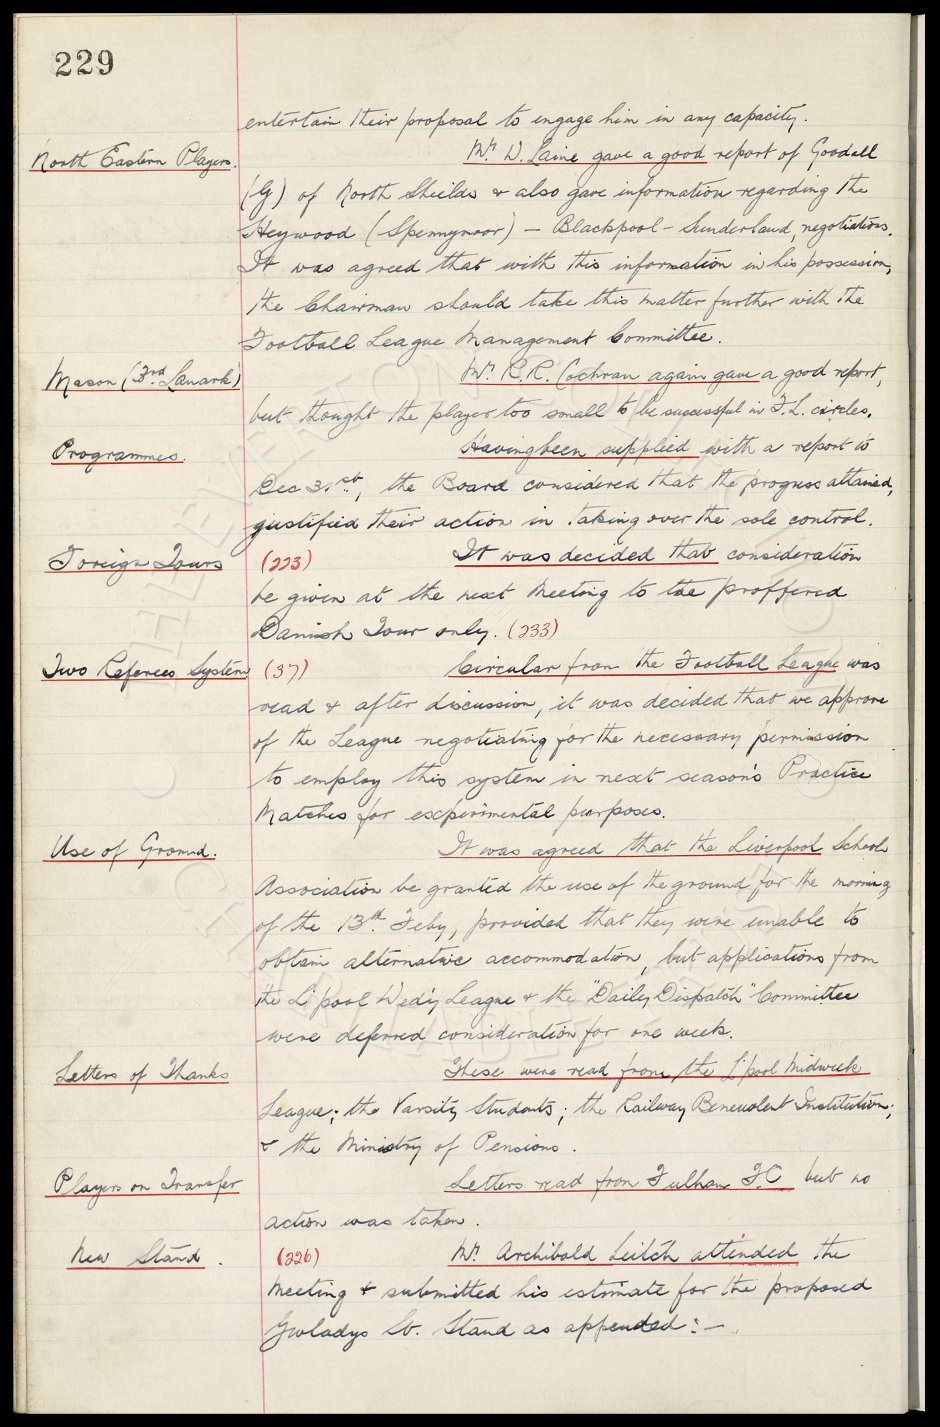 229
entertain their proposal to engage him in any capacity.
North Eastern Players. Mr. W. Laine gave a good report of Goodall
(G) of North Shields & also gave information regarding the
Heywood (Spennymoor) — Blackpool - Sunderland, negotiations.
It was agreed that with this information in his possession,
the Chairman should take this matter further with the
Football League Management Committee.
Mason (3rd Lanark) Mr. R.R. Cochran again gave a good report,
but thought the player too small to be successful in F.L. circles.
Programmes. Having been supplied with a report to
Dec 31st, the Board considered that the progress attained,
justified their action in taking over the sole control.
Foreign Tours (223) It was decided that consideration
be given at the next Meeting to the proffered
Danish Tour only. (233)
Two Referees System (37) Circular from the Football League was
read & after discussion, it was decided that we approve
of the League negotiating for the necessary permission
to employ this system in next season's Practice
Matches for experimental purposes.
Use of Ground. It was agreed that the Liverpool Schools
Association be granted the use of the ground for the morning
of the 13th Feby, provided that they were unable to
obtain alternative accommodation, but applications from
the L'pool Wed'y League & the "Daily Dispatch" Committee
were deferred consideration for one week.
Letters of Thanks These were read from the L'pool Midweek
League; the Varsity Students; the Railway Benevolent Institution;
& the Ministry of Pensions.
Players on Transfer Letters read from Fulham F.C but no
action was taken.
New Stand. (226) Mr. Archibald Leitch attended the
Meeting & submitted his estimate for the proposed
Gwladys St. Stand as appended:—